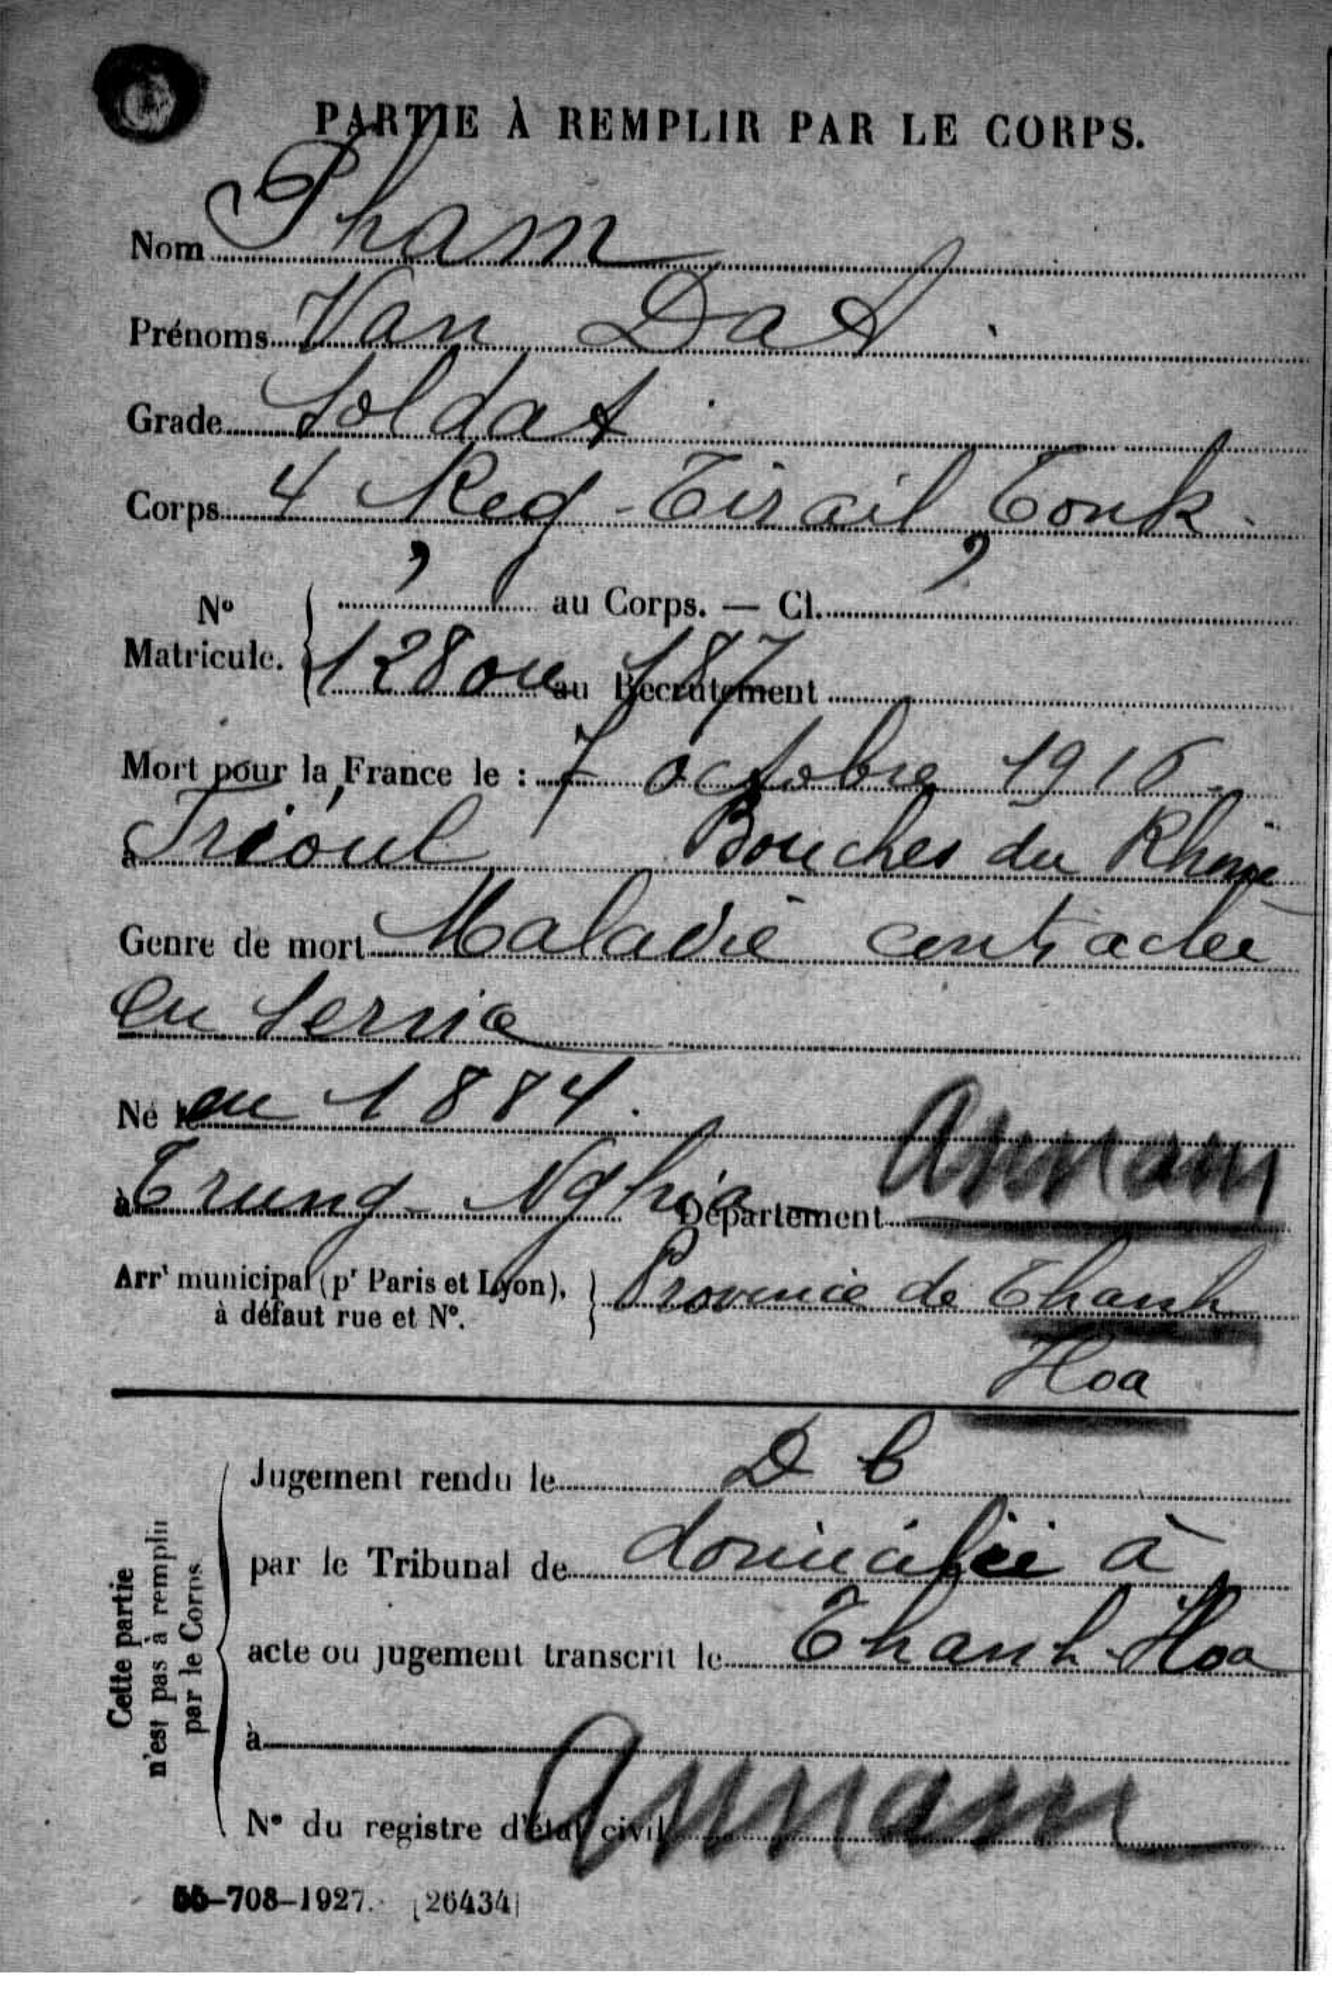 PARTIE À REMPLIR PAR LE CORPS.
Nom Pham
Prénoms Van Dat
Grade Soldat
Corps 4 Reg. Tirail, Tonk.
No Matricule. { au Corps. — Cl.
128 ou 187 au Recrutement
Mort pour la France le : 7 octobre 1916
à Frioul Bouches du Rhône
Genre de mort Maladie contractée
en service
Né le en 1884.
à Trung-Nghia Département Annam
Arrt municipal (pr Paris et Lyon), à défaut rue et No. } Province de Thanh
Hoa
Cette partie n'est pas à remplir par le Corps
Jugement rendu le D C
par le Tribunal de domicilié à
acte ou jugement transcrit le Thanh-Hoa
à
No du registre d'état civil Annam
55-708-1927. [26434]